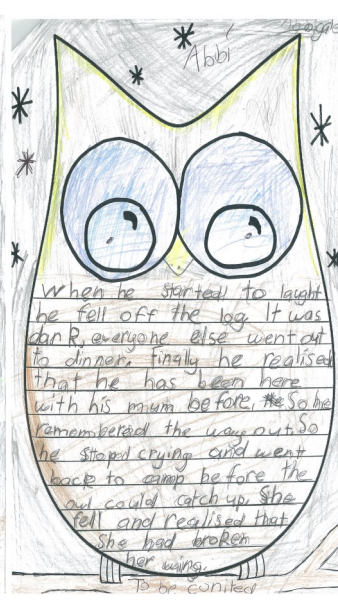 Abbi
Abbigale
When he started to laught
he fell off the log. It was
dark, everyone else went out
to dinner. finally he realised
that he has been here
with his mum before, So he
remembered the way out. So
he stoped crying and went
back to camp before the
owl could catch up. She
fell and realised that
She had broken
her wing.
To be cunited